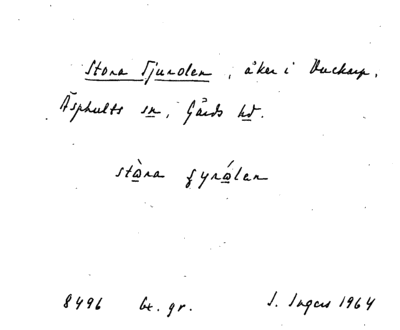 Stora Fjurolen, åker i Vuckarp,
Äsphults sn, Gärds hd.
stòra fyrólen
8496 bx. gr. I. Ingers 1964